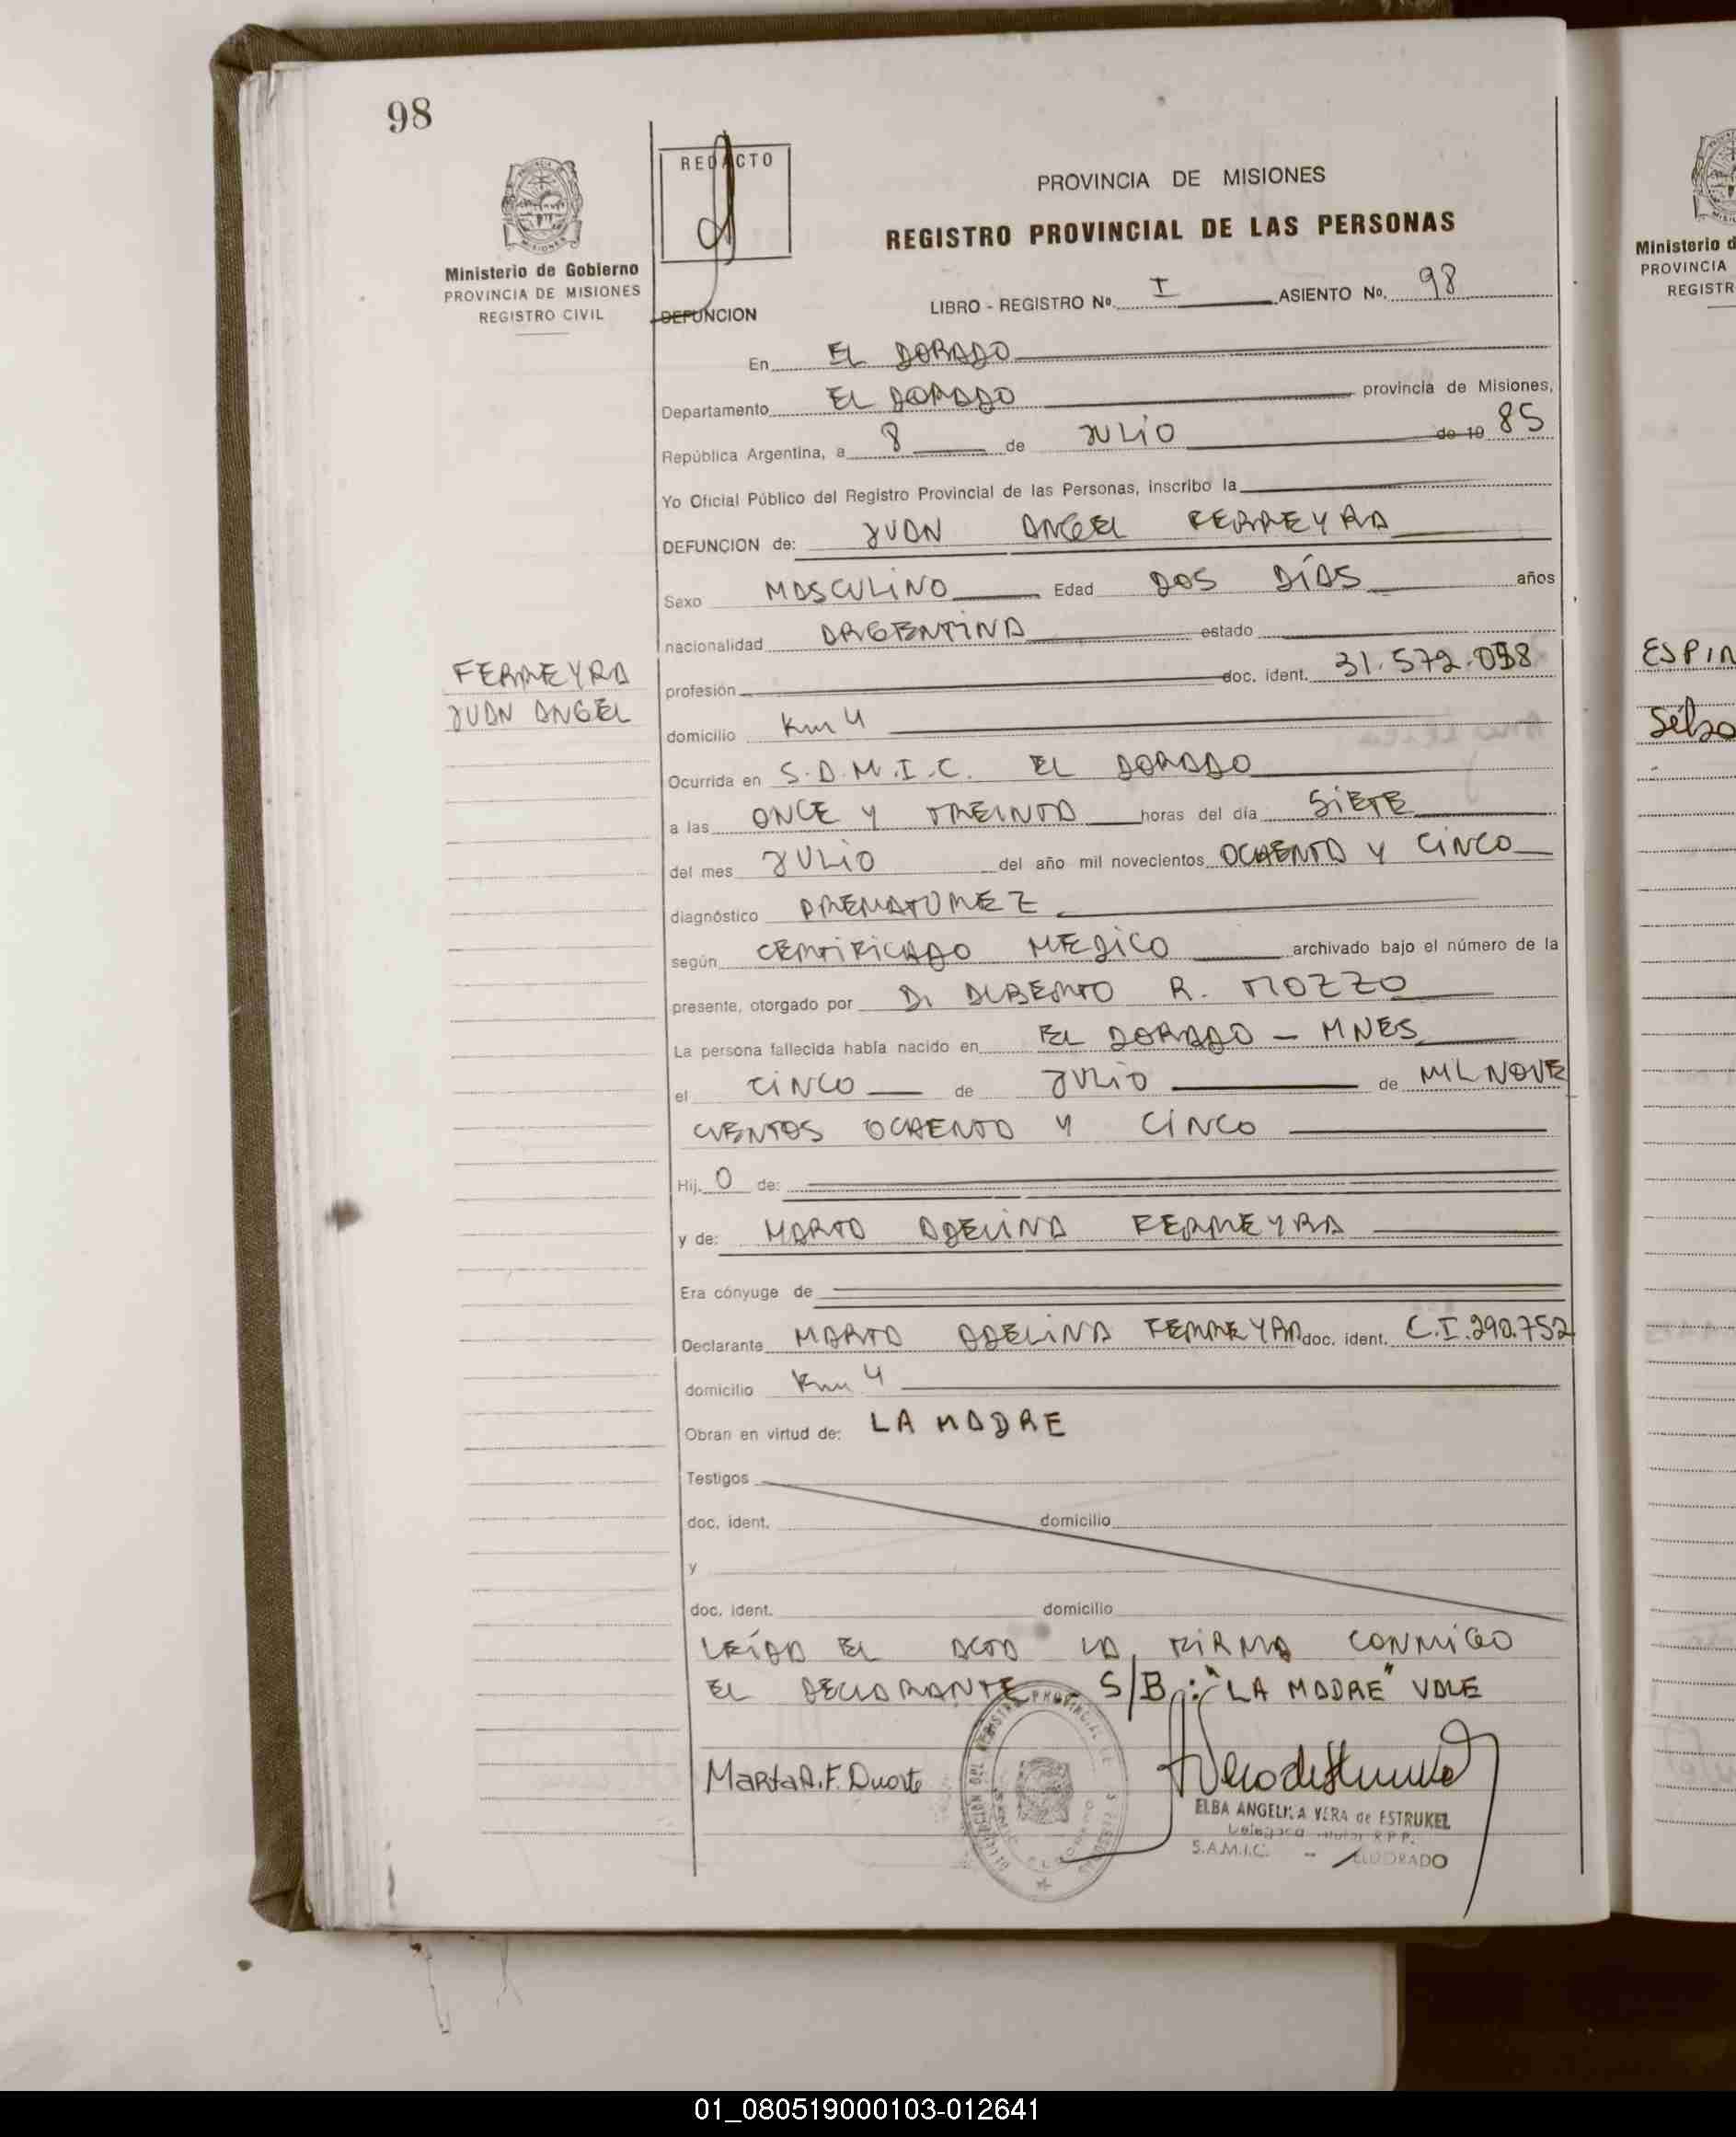 98
REDACTO
PROVINCIA DE MISIONES
REGISTRO PROVINCIAL DE LAS PERSONAS
Ministerio de Gobierno
PROVINCIA DE MISIONES
REGISTRO CIVIL
DEFUNCION
LIBRO - REGISTRO Nº. I ASIENTO Nº. 98
En EL DORADO
Departamento EL DORADO provincia de Misiones,
República Argentina, a 8 de JULIO de 19 85
Yo Oficial Público del Registro Provincial de las Personas, inscribo la
DEFUNCION de: JUAN ANGEL FERREYRA
Sexo MASCULINO Edad DOS DÍAS años
nacionalidad ARGENTINA estado
FERREYRA
JUAN ANGEL
profesión doc. ident. 31.572.058
domicilio Km 4
Ocurrida en S.A.M.I.C. EL DORADO
a las ONCE Y TREINTA horas del día SIETE
del mes JULIO del año mil novecientos OCHENTA Y CINCO
diagnóstico PREMATUREZ
según CERTIFICADO MEDICO archivado bajo el número de la
presente, otorgado por D. ALBERTO R. MOZZO
La persona fallecida había nacido en EL DORADO - MNES
el CINCO de JULIO de MIL NOVE
CIENTOS OCHENTA Y CINCO
Hij. O de:
y de: MARTA ADELINA FERREYRA
Era cónyuge de
Declarante MARTA ADELINA FERREYRA doc. ident. C.I.290.752
domicilio Km 4
Obran en virtud de: LA MADRE
Testigos
doc. ident. domicilio
y
doc. ident. domicilio
LEÍDA EL ACTA LA FIRMA CONMIGO
EL DECLARANTE S/B: "LA MADRE" VALE
Marta A. F. Duarte
ELBA ANGELICA VERA de ESTRUKEL
S.A.M.I.C. - ELDORADO
Ministerio d
PROVINCIA
REGISTR
ESPIN
01_080519000103-012641